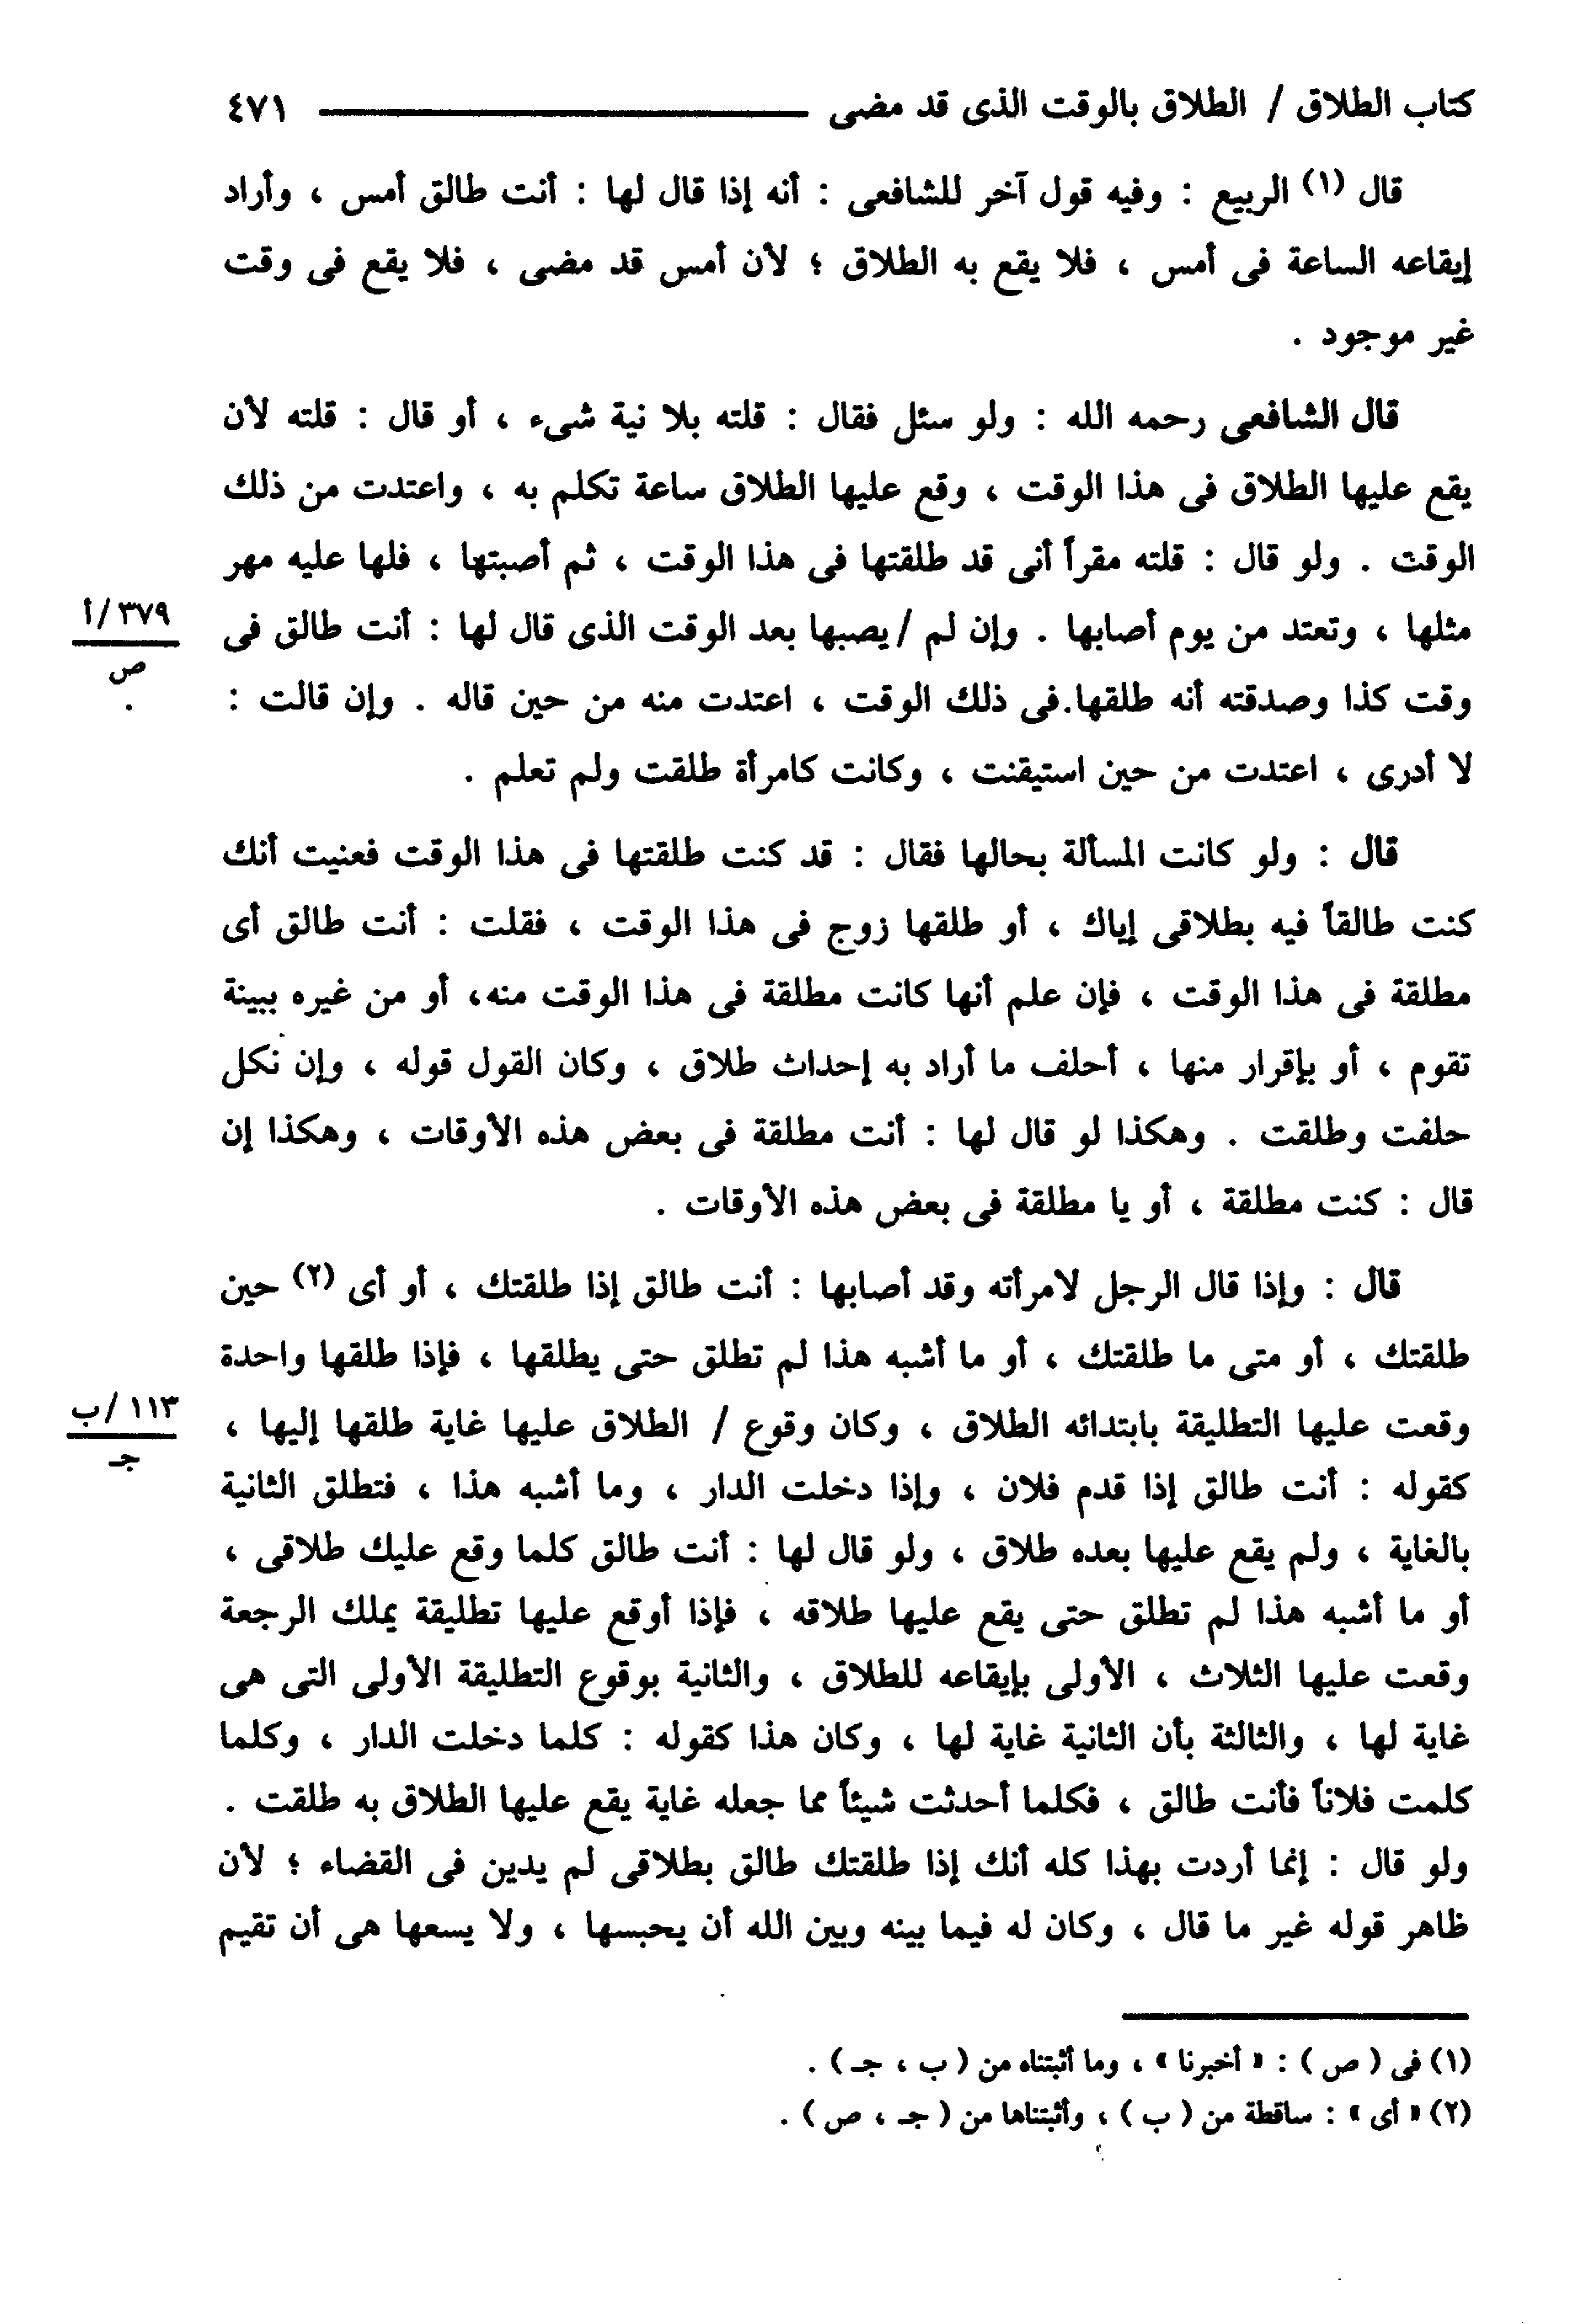 كتاب الطلاق / الطلاق بالوقت الذى قد مضى ــــــــــــــــ ٤٧١
قال (١) الربيع : وفيه قول آخر للشافعى : أنه إذا قال لها : أنت طالق أمس ، وأراد
إيقاعه الساعة فى أمس ، فلا يقع به الطلاق ؛ لأن أمس قد مضى ، فلا يقع فى وقت
غير موجود .
قال الشافعى رحمه الله : ولو سئل فقال : قلته بلا نية شىء ، أو قال : قلته لأن
يقع عليها الطلاق فى هذا الوقت ، وقع عليها الطلاق ساعة تكلم به ، واعتدت من ذلك
الوقت . ولو قال : قلته مقراً أنى قد طلقتها فى هذا الوقت ، ثم أصبتها ، فلها عليه مهر
مثلها ، وتعتد من يوم أصابها . وإن لم /يصبها بعد الوقت الذى قال لها : أنت طالق فى
٣٧٩/أ
ص
وقت كذا وصدقته أنه طلقها.فى ذلك الوقت ، اعتدت منه من حين قاله . وإن قالت :
لا أدرى ، اعتدت من حين استيقنت ، وكانت كامرأة طلقت ولم تعلم .
قال : ولو كانت المسألة بحالها فقال : قد كنت طلقتها فى هذا الوقت فعنيت أنك
كنت طالقاً فيه بطلاقى إياك ، أو طلقها زوج فى هذا الوقت ، فقلت : أنت طالق أى
مطلقة فى هذا الوقت ، فإن علم أنها كانت مطلقة فى هذا الوقت منه، أو من غيره ببينة
تقوم ، أو بإقرار منها ، أحلف ما أراد به إحداث طلاق ، وكان القول قوله ، وإن نكل
حلفت وطلقت . وهكذا لو قال لها : أنت مطلقة فى بعض هذه الأوقات ، وهكذا إن
قال : كنت مطلقة ، أو يا مطلقة فى بعض هذه الأوقات .
قال : وإذا قال الرجل لامرأته وقد أصابها : أنت طالق إذا طلقتك ، أو أى (٢) حين
طلقتك ، أو متى ما طلقتك ، أو ما أشبه هذا لم تطلق حتى يطلقها ، فإذا طلقها واحدة
وقعت عليها التطليقة بابتدائه الطلاق ، وكان وقوع / الطلاق عليها غاية طلقها إليها ،
١١٣/ب
جـ
كقوله : أنت طالق إذا قدم فلان ، وإذا دخلت الدار ، وما أشبه هذا ، فتطلق الثانية
بالغاية ، ولم يقع عليها بعده طلاق ، ولو قال لها : أنت طالق كلما وقع عليك طلاقى ،
أو ما أشبه هذا لم تطلق حتى يقع عليها طلاقه ، فإذا أوقع عليها تطليقة يملك الرجعة
وقعت عليها الثلاث ، الأولى بإيقاعه للطلاق ، والثانية بوقوع التطليقة الأولى التى هى
غاية لها ، والثالثة بأن الثانية غاية لها ، وكان هذا كقوله : كلما دخلت الدار ، وكلما
كلمت فلاناً فأنت طالق ، فكلما أحدثت شيئاً مما جعله غاية يقع عليها الطلاق به طلقت .
ولو قال : إنما أردت بهذا كله أنك إذا طلقتك طالق بطلاقى لم يدين فى القضاء ؛ لأن
ظاهر قوله غير ما قال ، وكان له فيما بينه وبين الله أن يحبسها ، ولا يسعها هى أن تقيم
(١) فى ( ص ) : « أخبرنا » ، وما أثبتناه من ( ب ، جـ ) .
(٢) « أى » : ساقطة من ( ب ) ، وأثبتناها من ( جـ ، ص ) .